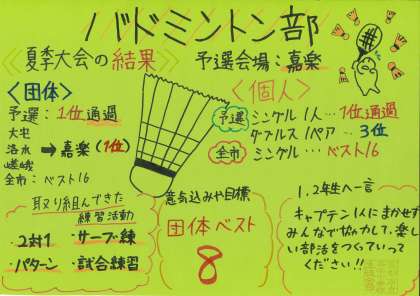 バドミントン部
《夏季大会の結果》
予選会場：嘉楽
〈団体〉
予選：1位通過
大宅
洛水 → 嘉楽(1位)
嵯峨
全市：ベスト16
〈個人〉
予選 シングル1人…1位通過
ダブルス1ペア…3位
全市 シングル…ベスト16
取り組んできた
練習活動
・2対1 ・サーブ練
・パターン ・試合練習
意気込みや目標
団体ベスト
8
1,2年生へ一言
キャプテン1人にまかせず
みんなで協力して、楽し
い部活をつくっていって
ください!!